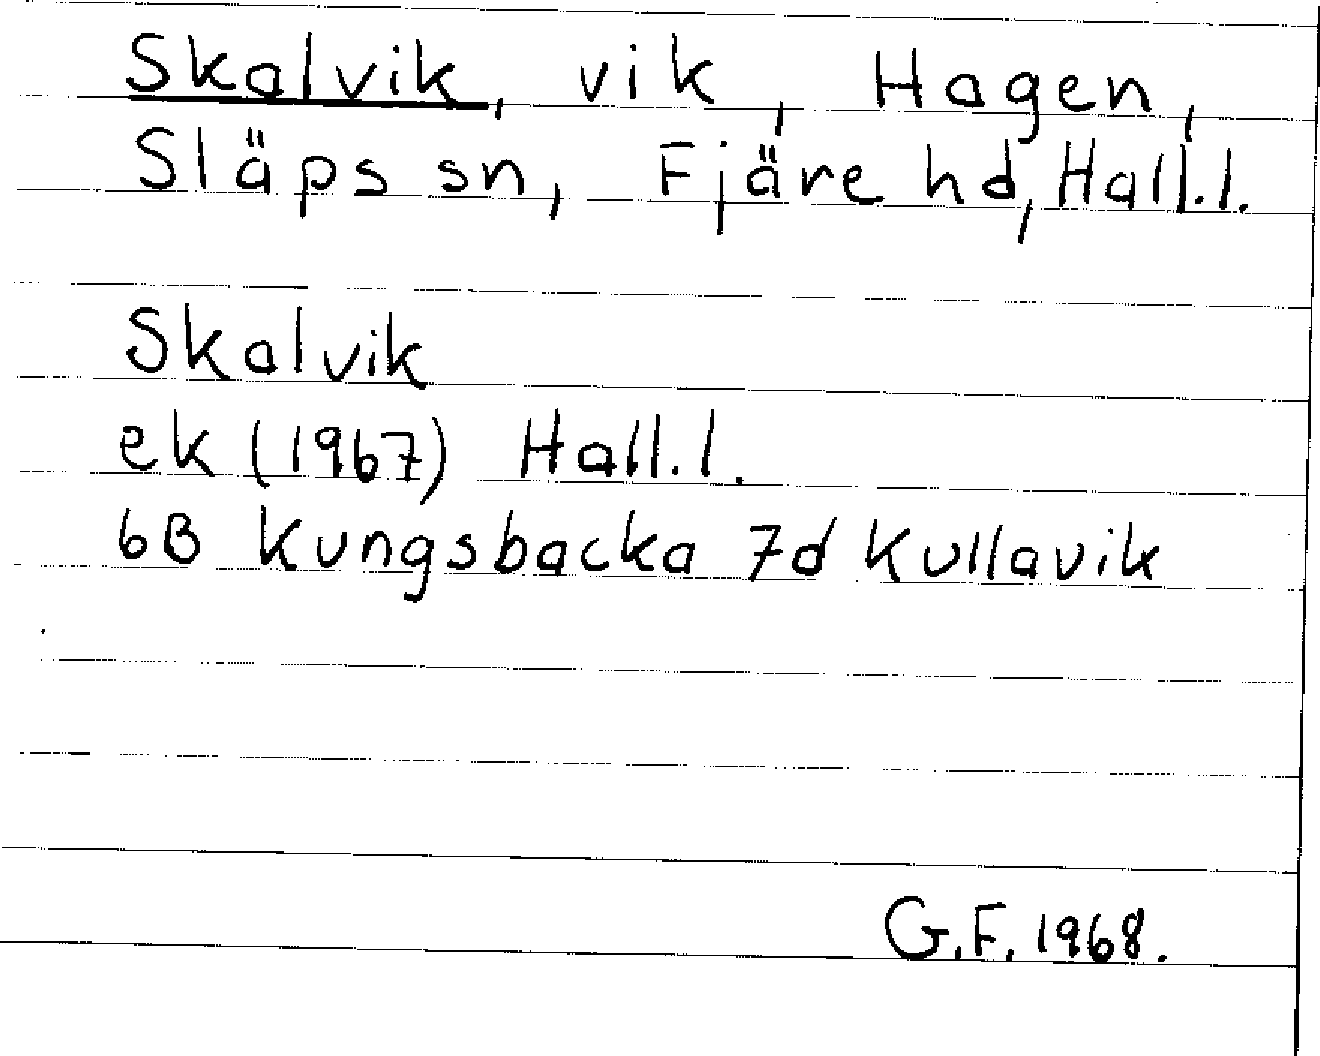 Skalvik, vik, Hagen,
Släps sn, Fjäre hd, Hall.l.
Skalvik
ek (1967) Hall.l.
6B Kungsbacka 7d Kullavik
G.F. 1968.